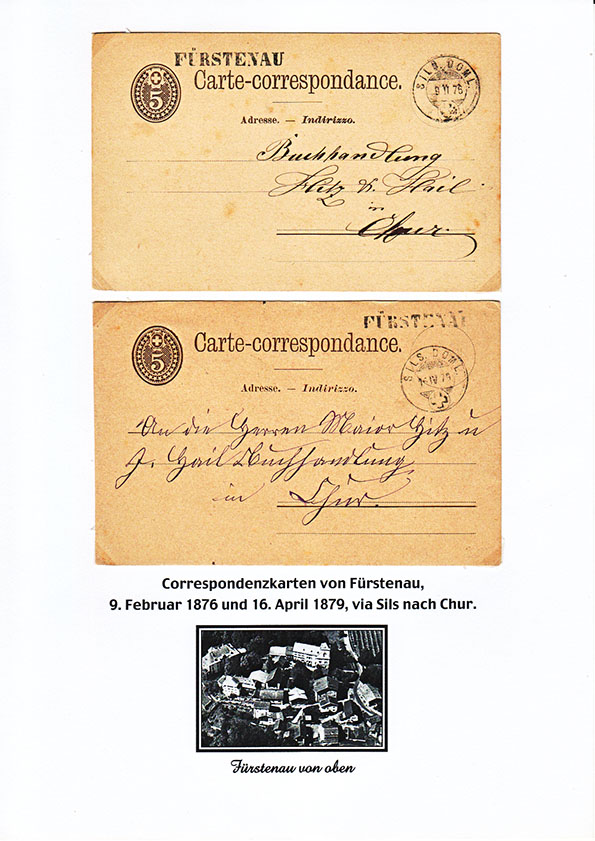 FÜRSTENAU
5
Carte-correspondance.
SILS. DOML.
9 VI 76
Adresse. — Indirizzo.
Buchhandlung
Hitz & Hail
in
Chur.
FÜRSTENAU
5
Carte-correspondance.
SILS. DOML.
16 IV 79
Adresse. — Indirizzo.
An die Herren Maior Hitz u
J. Hail Buchhandlung
in Chur.
Correspondenzkarten von Fürstenau,
9. Februar 1876 und 16. April 1879, via Sils nach Chur.
Fürstenau von oben